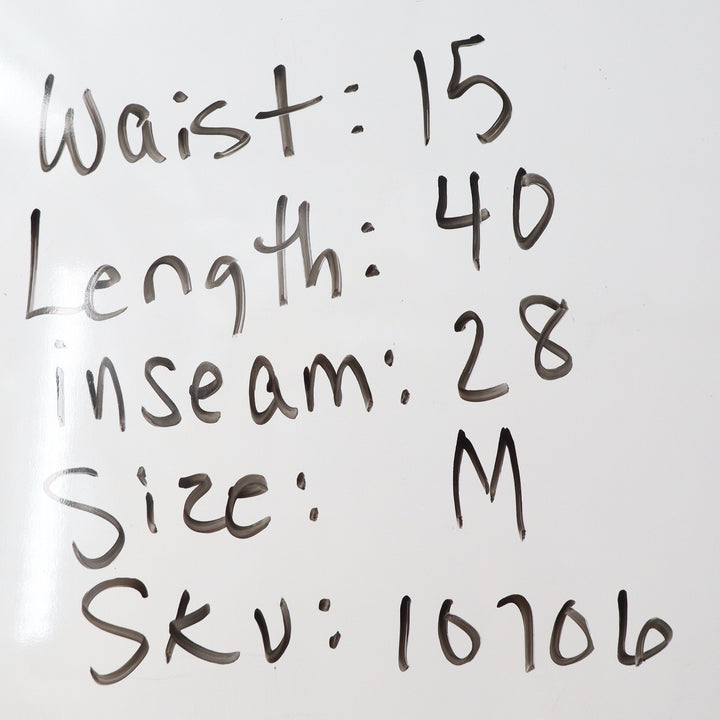 Waist: 15
Length: 40
inseam: 28
Size: M
SKU: 10706